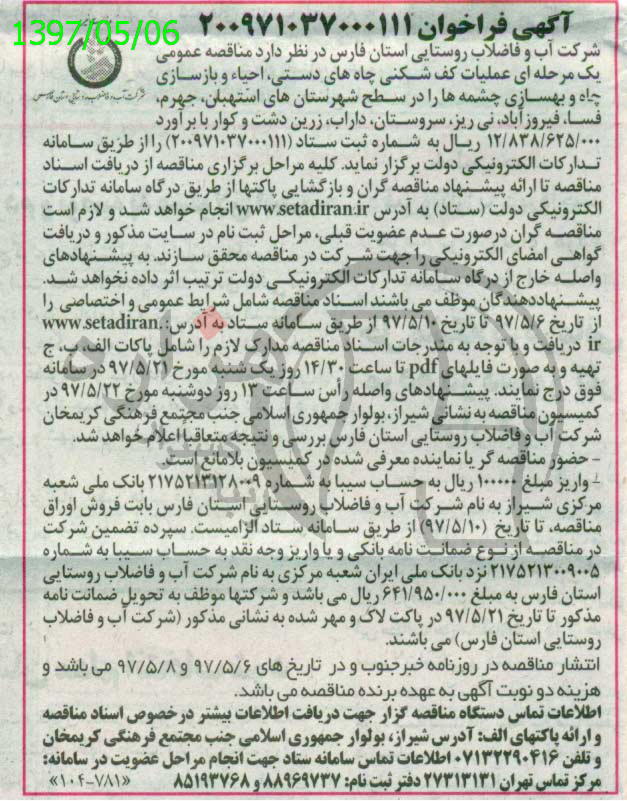 آگهی فراخوان ۲۰۰۹۷۱۰۳۷۰۰۰۱۱۱
1397/05/06
شرکت آب و فاضلاب روستایی استان فارس در نظر دارد مناقصه عمومی
یک مرحله ای عملیات کف شکنی چاه های دستی، احیاء و بازسازی
چاه و بهسازی چشمه ها را در سطح شهرستان های استهبان، جهرم،
شرکت آب و فاضلاب روستایی استان فارس
فسا، فیروزآباد، نی ریز، سروستان، داراب، زرین دشت و کوار با برآورد
۱۲/۸۳۸/۶۲۵/۰۰۰ ریال به شماره ثبت ستاد (۲۰۰۹۷۱۰۳۷۰۰۰۱۱۱) را از طریق سامانه
تدارکات الکترونیکی دولت برگزار نماید. کلیه مراحل برگزاری مناقصه از دریافت اسناد
مناقصه تا ارائه پیشنهاد مناقصه گران و بازگشایی پاکتها از طریق درگاه سامانه تدارکات
الکترونیکی دولت (ستاد) به آدرس www.setadiran.ir انجام خواهد شد و لازم است
مناقصه گران درصورت عدم عضویت قبلی، مراحل ثبت نام در سایت مذکور و دریافت
گواهی امضای الکترونیکی را جهت شرکت در مناقصه محقق سازند. به پیشنهادهای
واصله خارج از درگاه سامانه تدارکات الکترونیکی دولت ترتیب اثر داده نخواهد شد.
پیشنهاددهندگان موظف می باشند اسناد مناقصه شامل شرایط عمومی و اختصاصی را
از تاریخ ۹۷/۵/۶ تا تاریخ ۹۷/۵/۱۰ از طریق سامانه ستاد به آدرس: www.setadiran.
ir دریافت و با توجه به مندرجات اسناد مناقصه مدارک لازم را شامل پاکات الف، ب، ج
تهیه و به صورت فایلهای pdf تا ساعت ۱۴/۳۰ روز یک شنبه مورخ ۹۷/۵/۲۱ در سامانه
فوق درج نمایند. پیشنهادهای واصله رأس ساعت ۱۳ روز دوشنبه مورخ ۹۷/۵/۲۲ در
کمیسیون مناقصه به نشانی شیراز، بولوار جمهوری اسلامی جنب مجتمع فرهنگی کریمخان
شرکت آب و فاضلاب روستایی استان فارس بررسی و نتیجه متعاقبا اعلام خواهد شد.
- حضور مناقصه گر یا نماینده معرفی شده در کمیسیون بلامانع است.
- واریز مبلغ ۱۰۰۰۰۰ ریال به حساب سیبا به شماره ۲۱۷۵۲۱۳۱۲۸۰۰۹ بانک ملی شعبه
مرکزی شیراز به نام شرکت آب و فاضلاب روستایی استان فارس بابت فروش اوراق
مناقصه، تا تاریخ (۹۷/۵/۱۰) از طریق سامانه ستاد الزامیست. سپرده تضمین شرکت
در مناقصه از نوع ضمانت نامه بانکی و یا واریز وجه نقد به حساب سیبا به شماره
۲۱۷۵۲۱۳۰۰۹۰۰۵ نزد بانک ملی ایران شعبه مرکزی به نام شرکت آب و فاضلاب روستایی
استان فارس به مبلغ ۶۴۱/۹۵۰/۰۰۰ ریال می باشد و شرکتها موظف به تحویل ضمانت نامه
مذکور تا تاریخ ۹۷/۵/۲۱ در پاکت لاک و مهر شده به نشانی مذکور (شرکت آب و فاضلاب
روستایی استان فارس) می باشند.
انتشار مناقصه در روزنامه خبرجنوب و در تاریخ های ۹۷/۵/۶ و ۹۷/۵/۸ می باشد و
هزینه دو نوبت آگهی به عهده برنده مناقصه می باشد.
اطلاعات تماس دستگاه مناقصه گزار جهت دریافت اطلاعات بیشتر در خصوص اسناد مناقصه
و ارائه پاکتهای الف: آدرس شیراز، بولوار جمهوری اسلامی جنب مجتمع فرهنگی کریمخان
و تلفن ۰۷۱۳۲۲۹۰۴۱۶ اطلاعات تماس سامانه ستاد جهت انجام مراحل عضویت در سامانه:
مرکز تماس تهران ۲۷۳۱۳۱۳۱ دفتر ثبت نام: ۸۸۹۶۹۷۳۷ و ۸۵۱۹۳۷۶۸ «۱۰۴-۷۸۱»